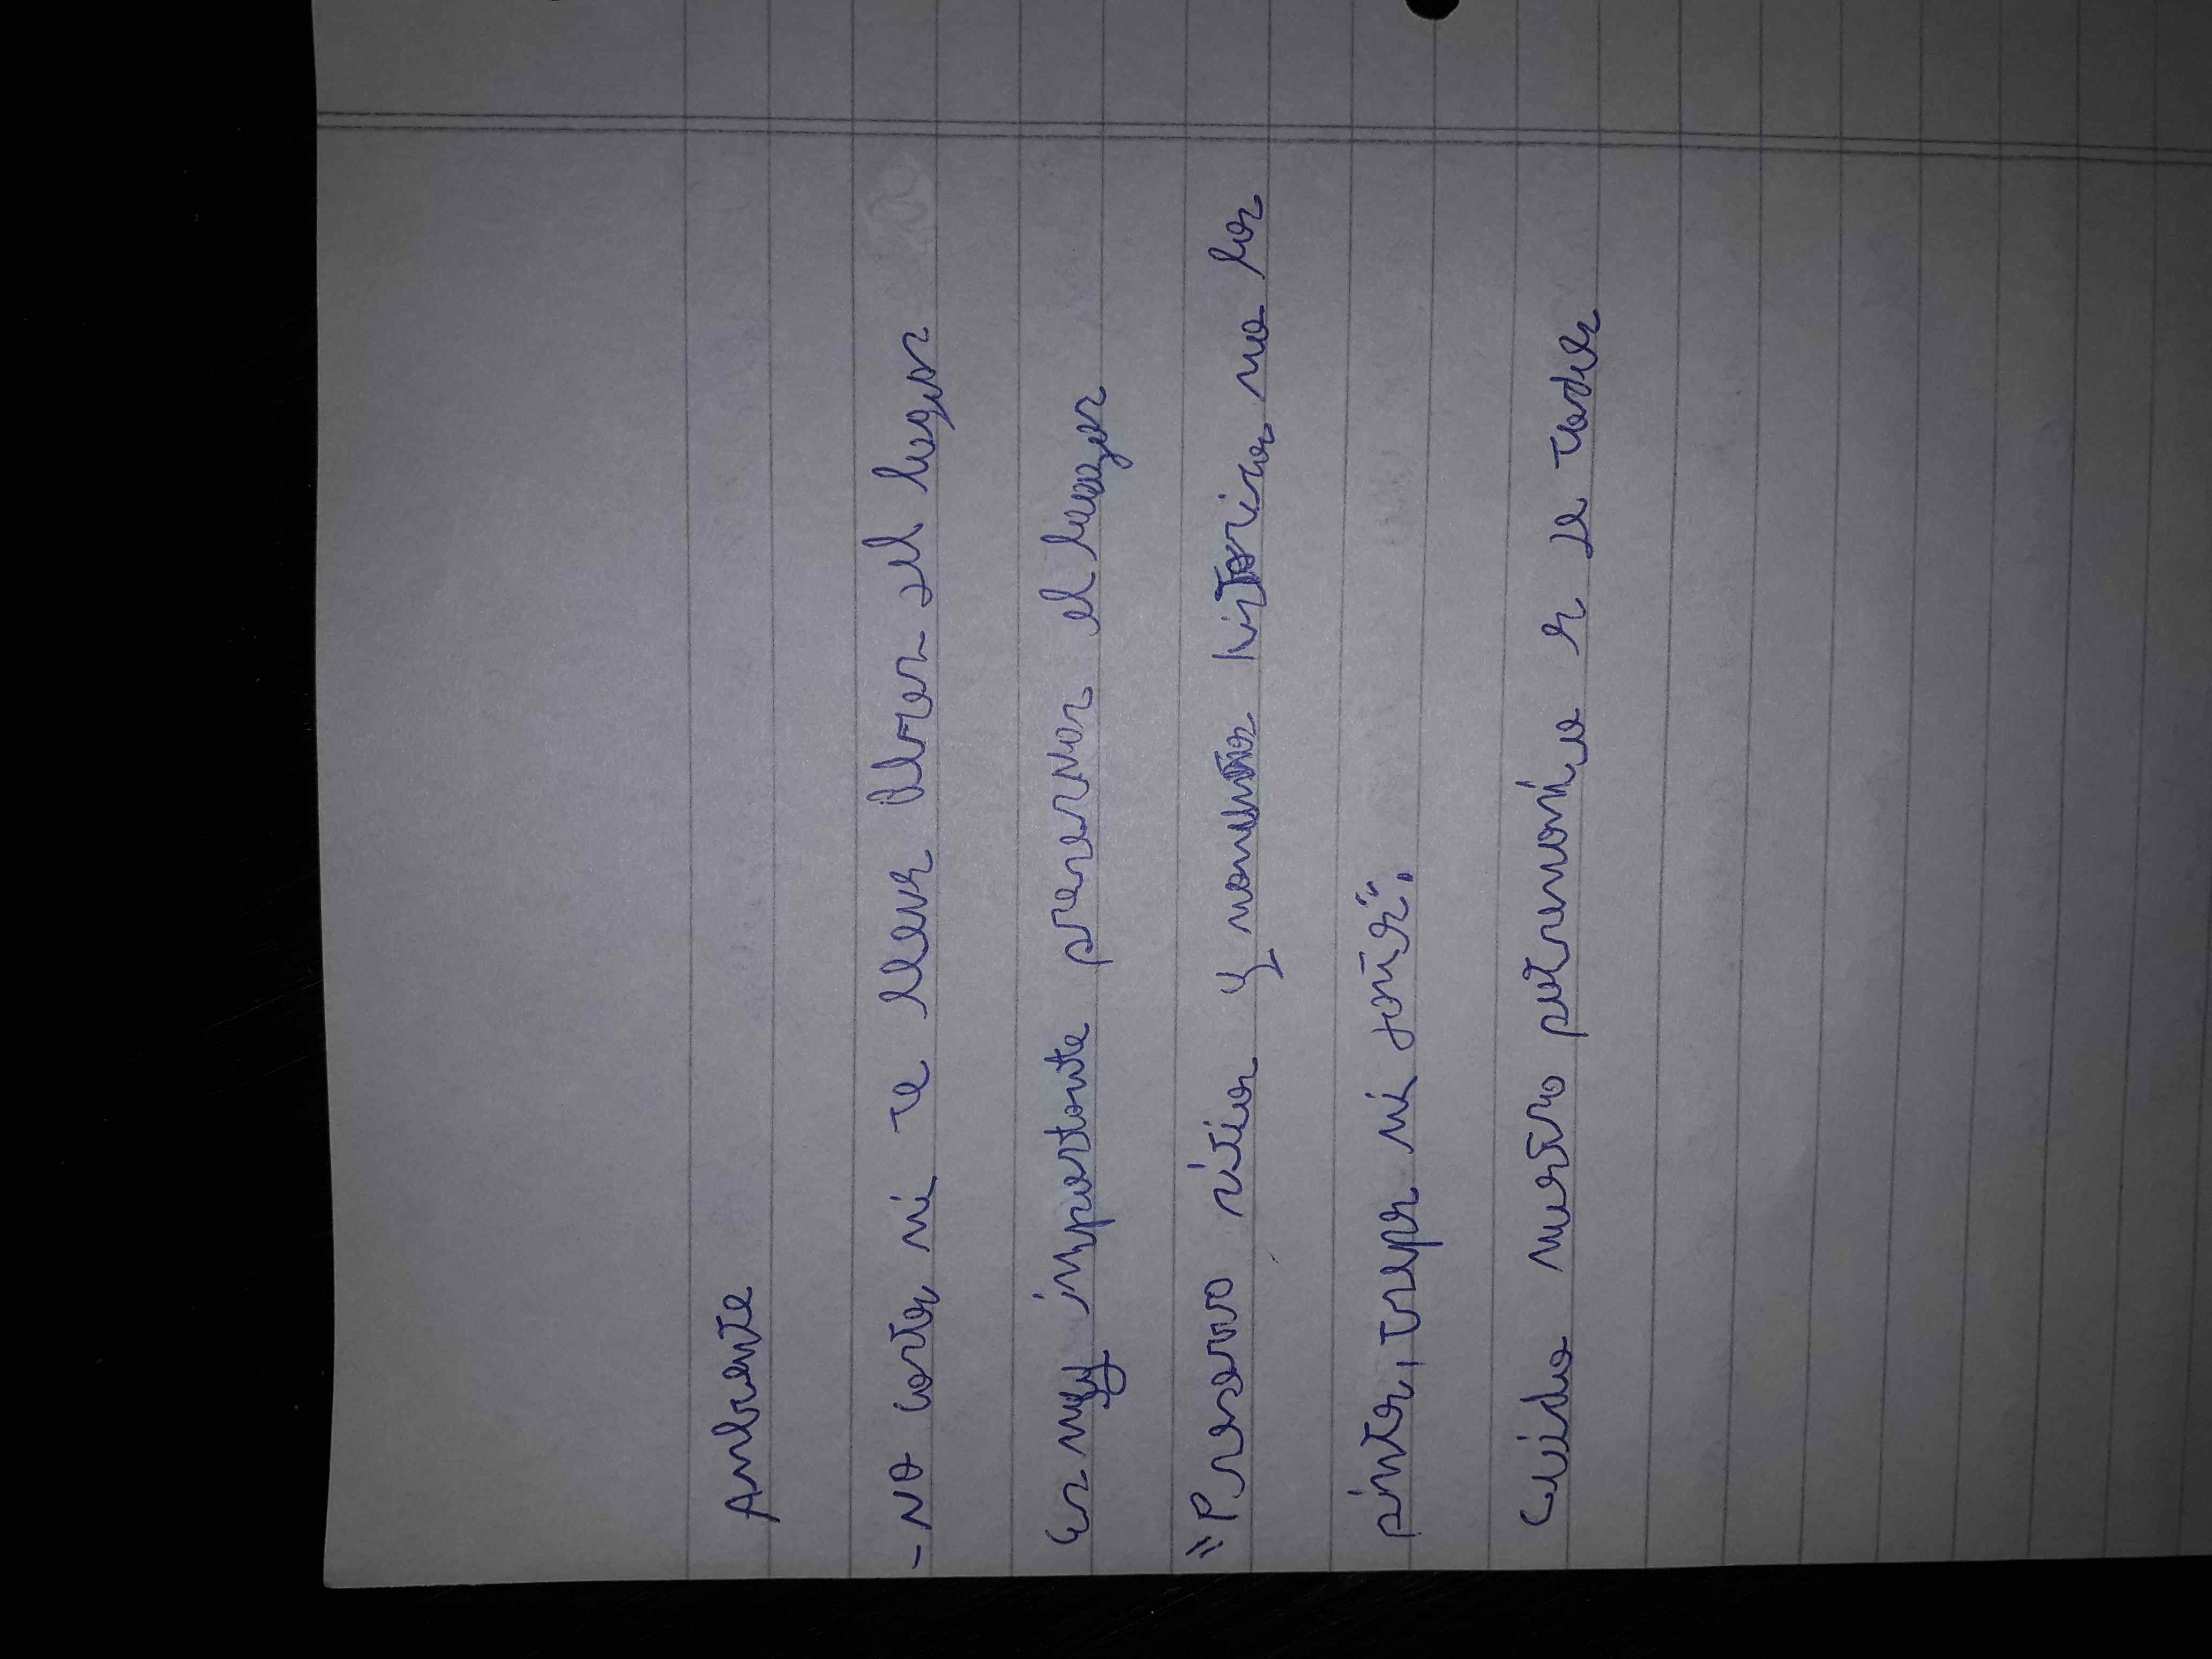 Ambiente
- No cortes ni te lleves flores del lugar
Es muy importante preservar el lugar
"Preservo sitios y monumentos históricos, no los
pintes, trepes ni
Cuida nuestro patrimonio, es de todos